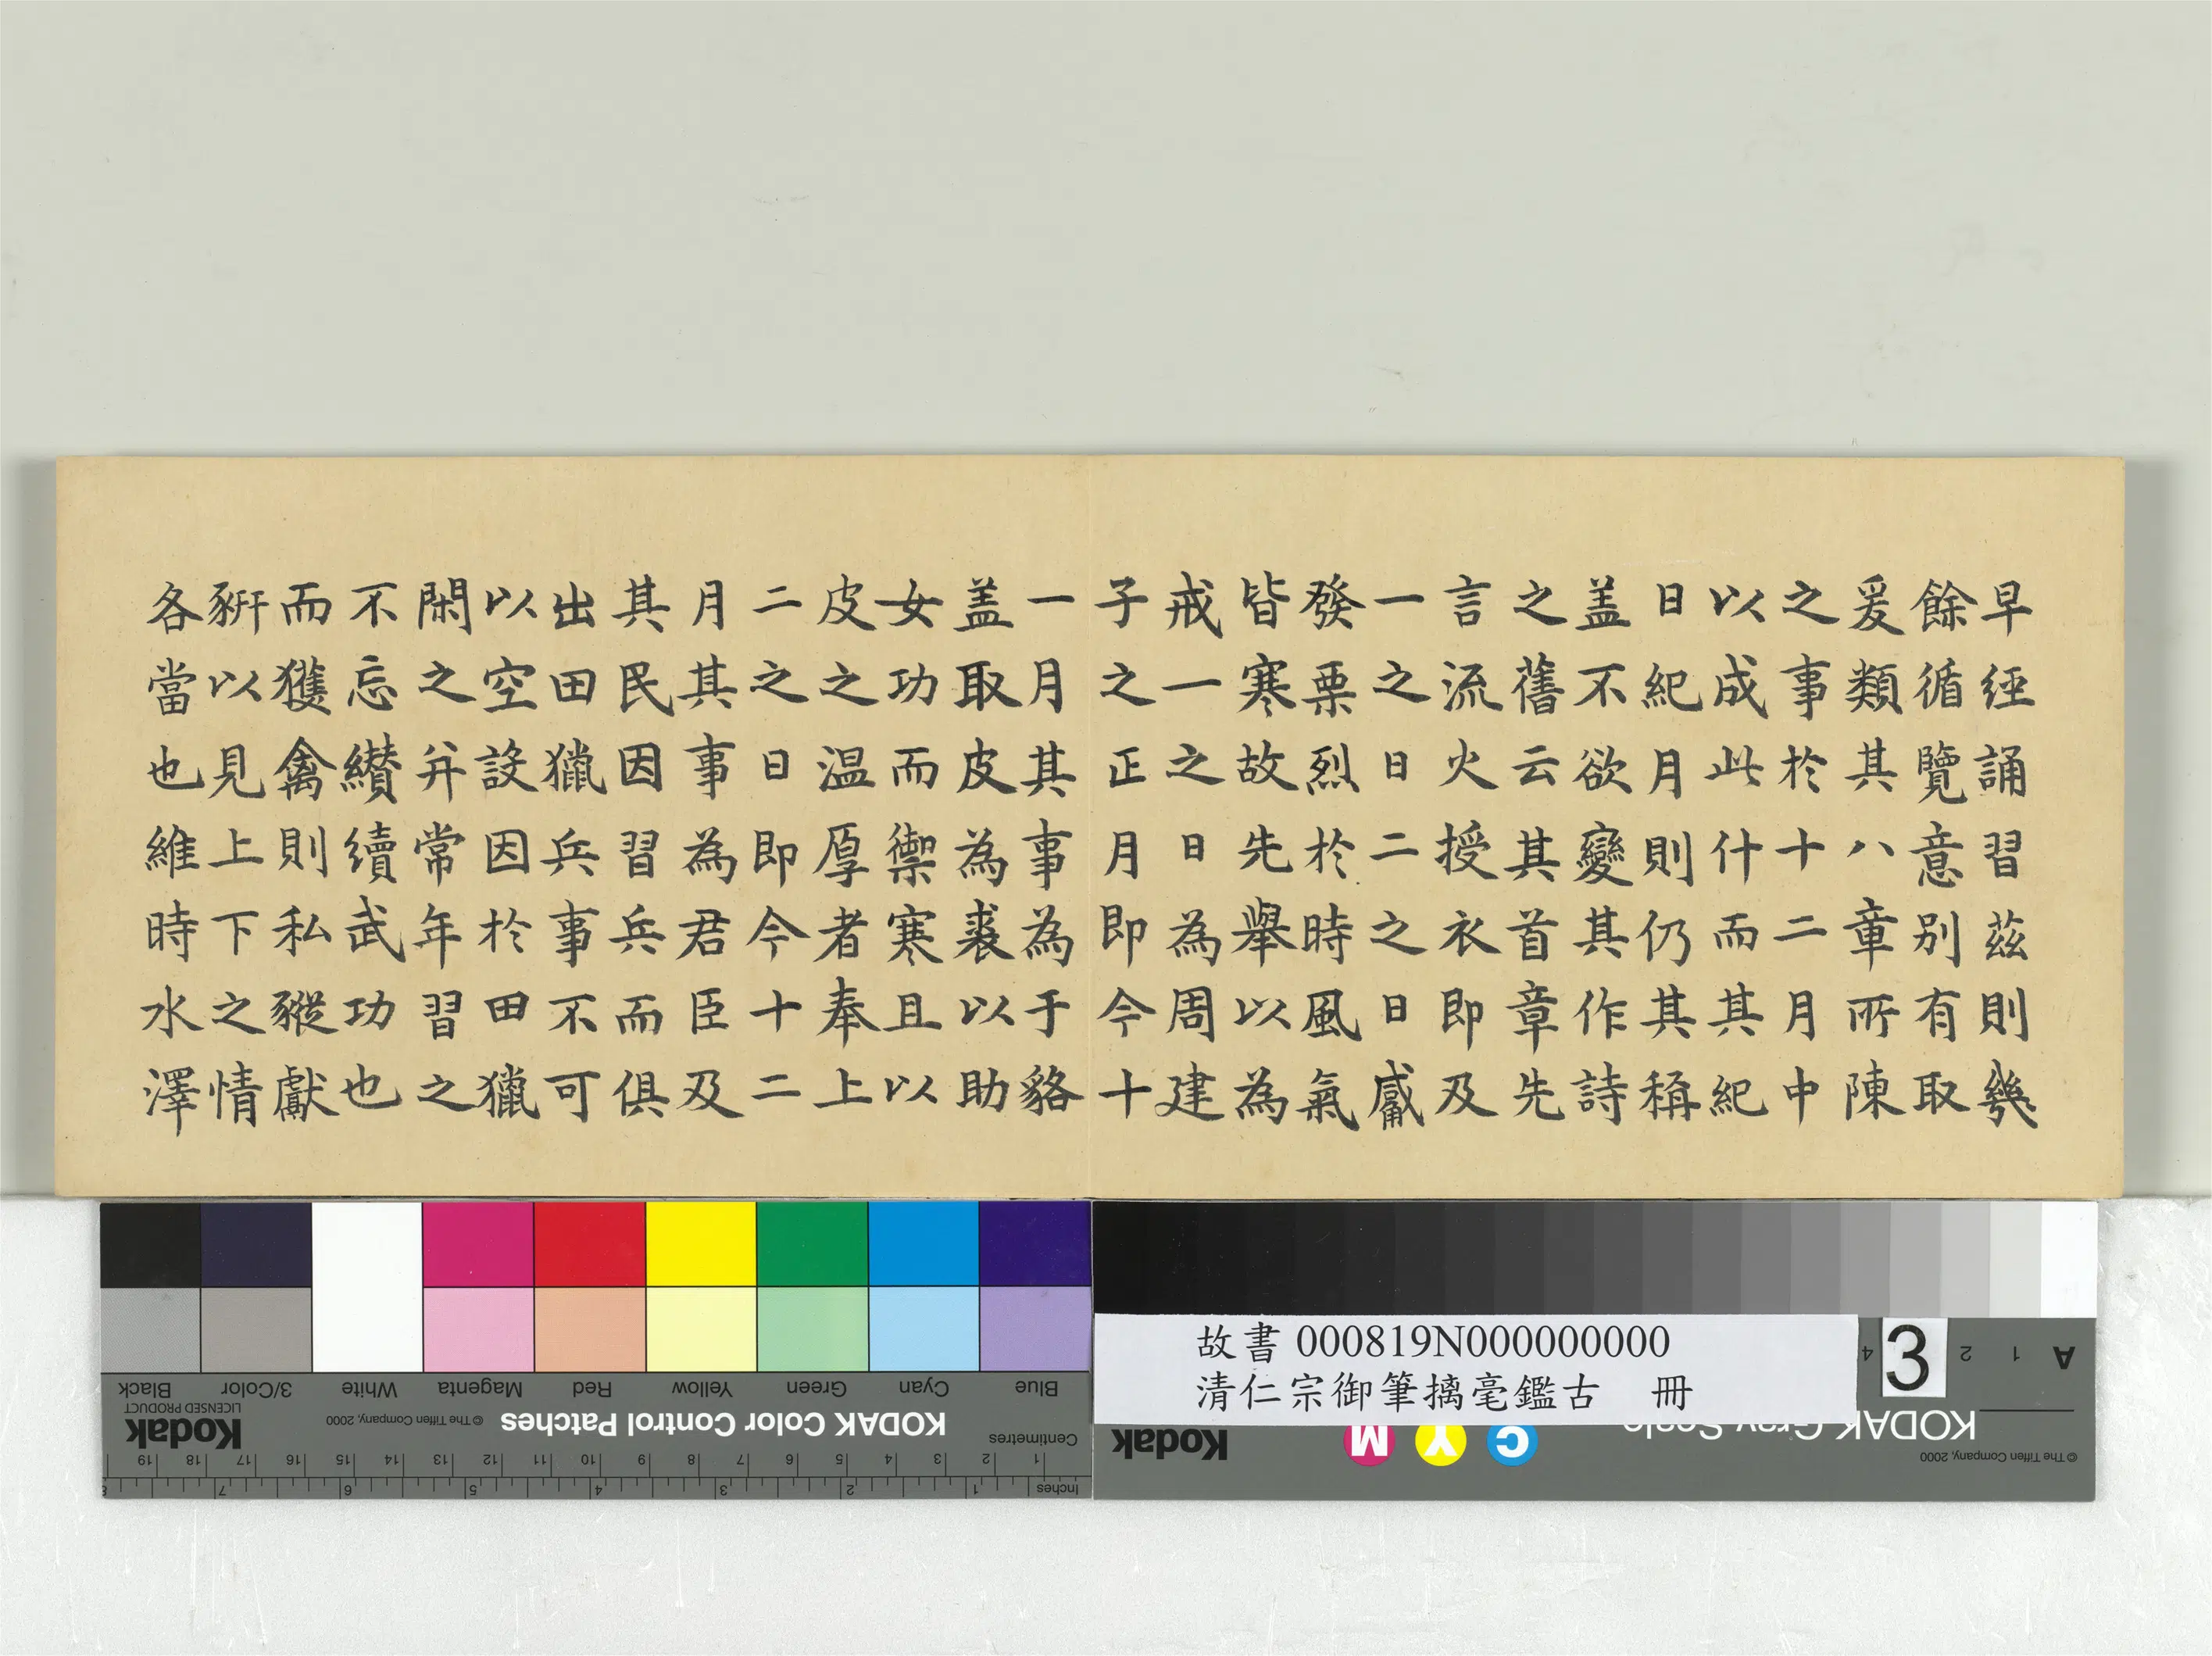 早經誦習茲則幾
餘循覽意別有取
爰類其八章所陳
之事於十二月中
以成此什而其紀
日紀月則仍其稱
蓋不欲變其作詩
之舊云其首章先
言流火授衣即及
一之日二之日觱
發栗烈於時風氣
皆寒故先舉以為
戒一之日為周建
子之正月即今十
一月其事為于貉
盖取皮為裘以助
女功而禦寒且以
皮之温厚者奉上
二之日即今十二
月其事為君臣及
其民因習兵而俱
出田獵兵事不可
以空設因於田獵
閑之并常年習之
不忘纘續武功也
而獲禽則私豵獻
豜以見上下之情
各當也維時水澤
Blue
Cyan
Green
Yellow
Red
Magenta
White
3/Color
Black
KODAK Color Control Patches
© The Tiffen Company, 2000
Kodak
LICENSED PRODUCT
Centimetres
1 2 3 4 5 6 7 8 9 10 11 12 13 14 15 16 17 18 19
Inches
1 2 3 4 5 6 7 8
故書 000819N000000000
清仁宗御筆摛毫鑑古 冊
3
A 1 2 4
KODAK Gray Scale
C Y M
Kodak
© The Tiffen Company, 2000